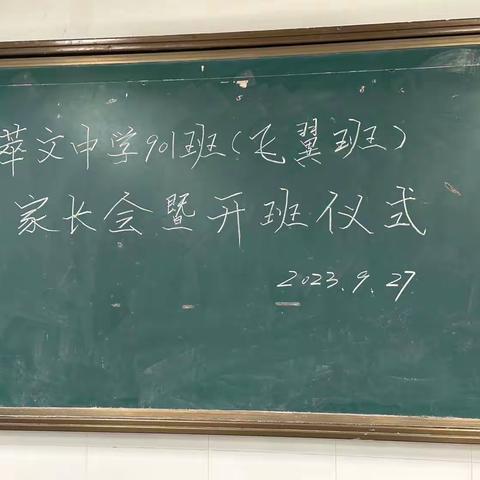 萃文中学901班(飞翼班)
家长会暨开班仪式
2023.9.27